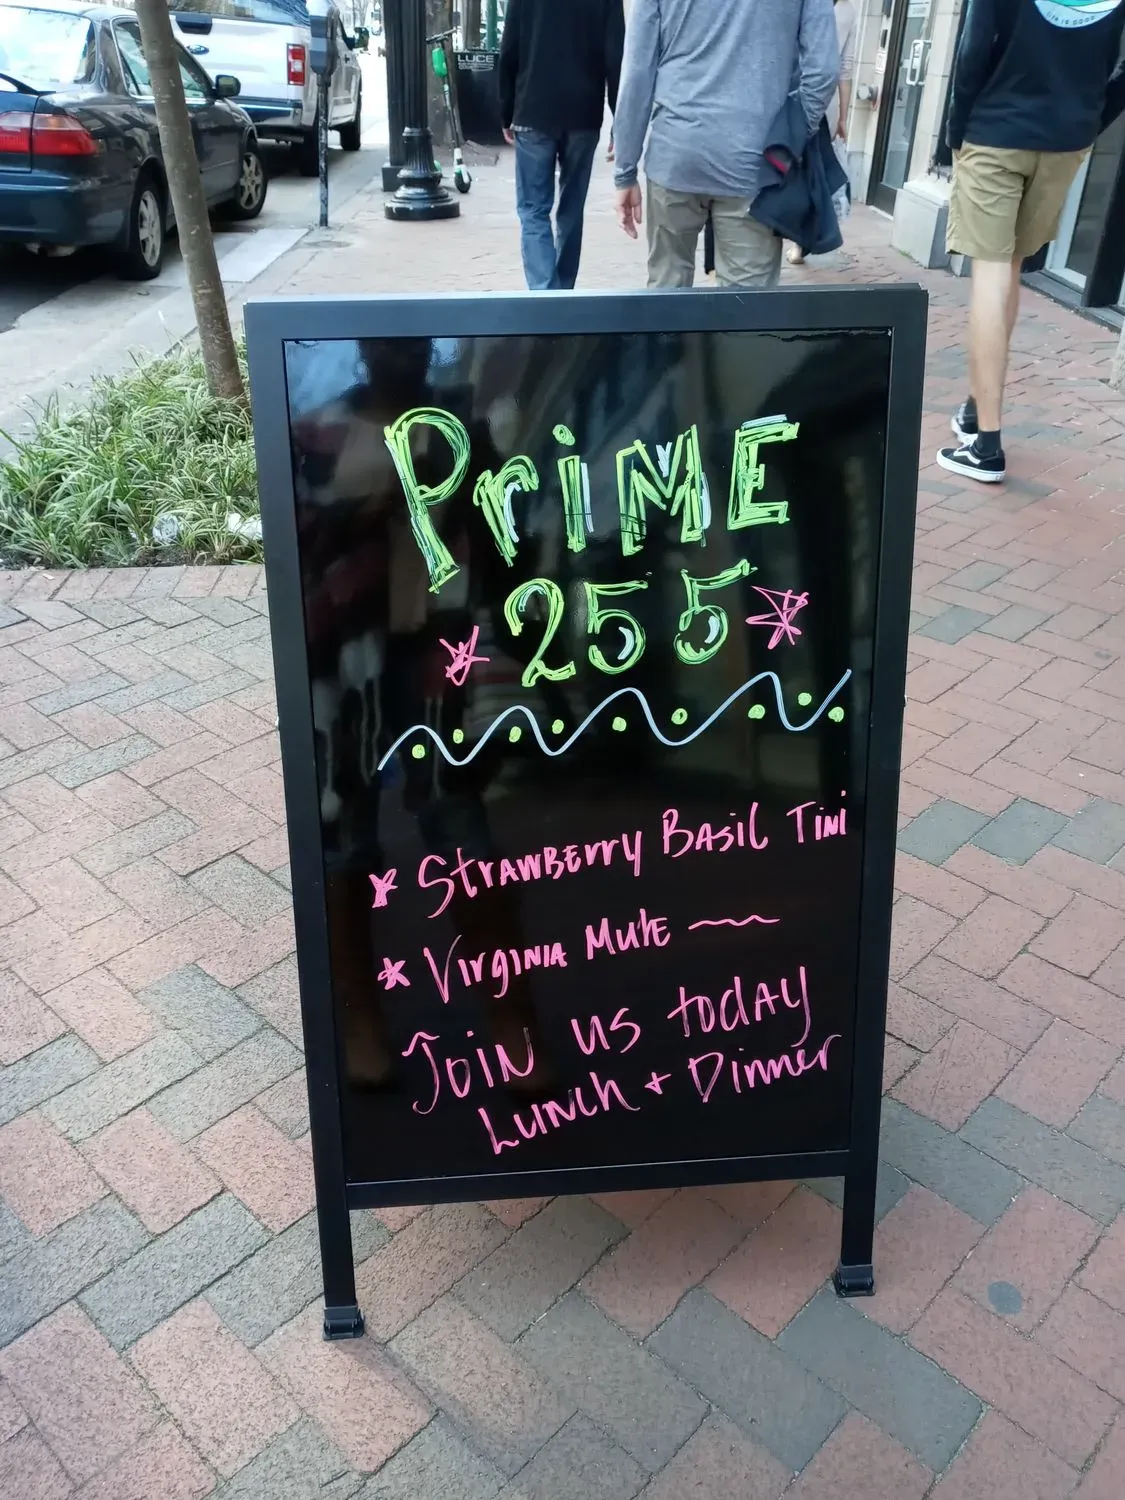 LUCE
LIFE IS GOOD
PriME
255
* StrAwBErry BAsil TiNi
* VirgiNiA MulE
JoiN us todAy
LuNch + Dinner